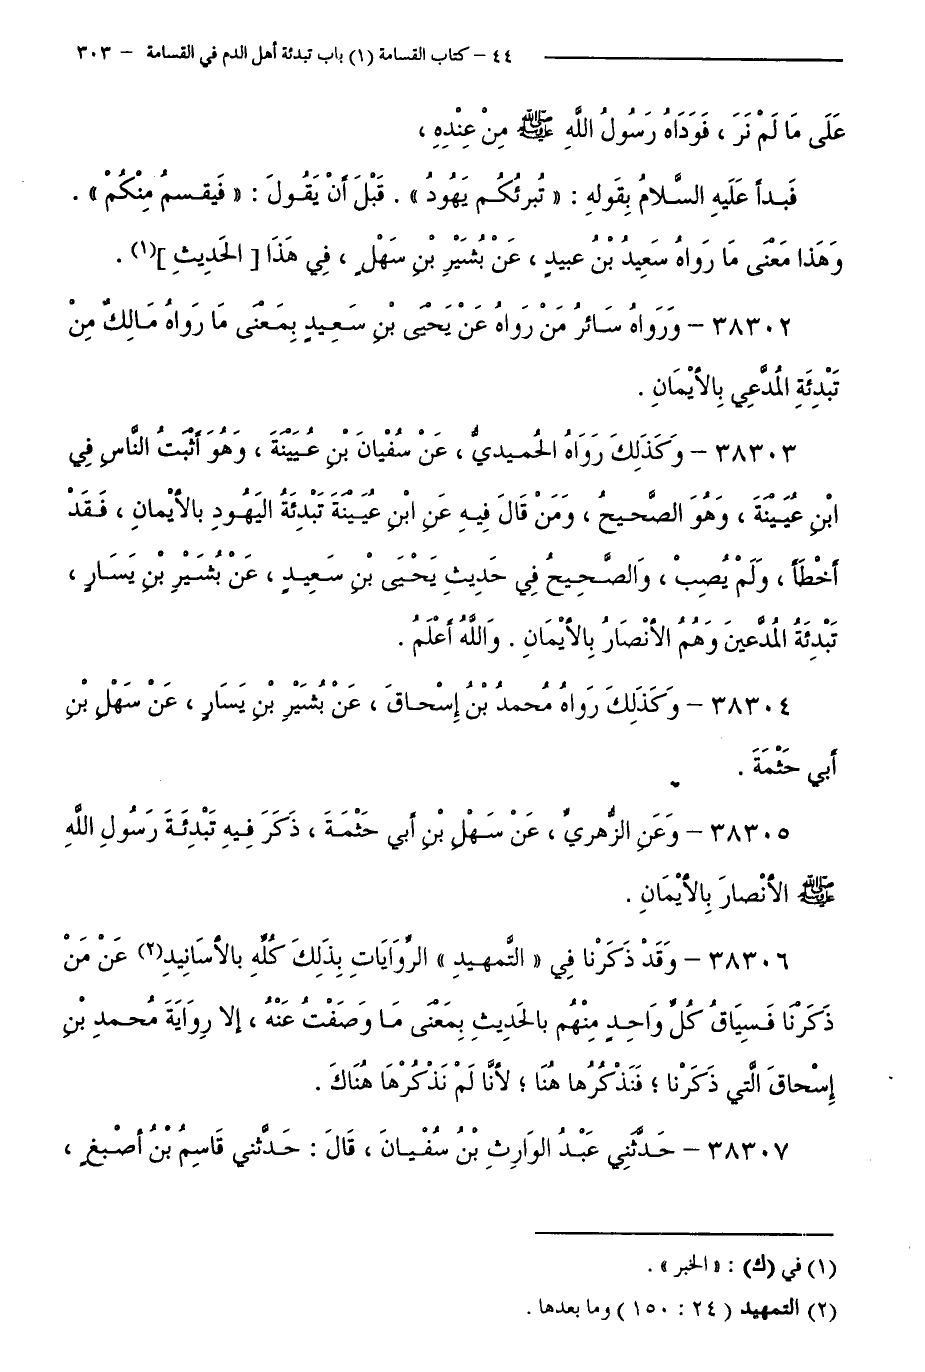 ٤٤ – كتاب القسامة (١) باب تبدئة أهل الدم في القسامة – ٣٠٣
عَلَى مَا لَمْ نَرَ ، فَوَدَاهُ رَسُولُ اللَّهِ ﷺ مِنْ عِنْدِهِ ،
فَبدأ عَلَيهِ السَّلامُ بِقَولهِ : « تُبرئكُم يَهُودُ » . قَبْلَ أنْ يَقُولَ : « فَيقسمُ مِنْكُمْ » .
وَهَذا مَعْنَى مَا رَواهُ سَعِيدُ بْنُ عبيدٍ ، عَنْ بُشَيْرِ بْنِ سَهْلٍ ، فِي هَذَا [ الحَديثِ ](١) .
٣٨٣٠٢ – وَرَواهُ سَائرُ مَنْ رَواهُ عَنْ يَحْيَى بْنِ سَعِيدٍ بِمَعْنَى مَا رَواهُ مَالِكٌ مِنْ
تَبْدِئَةِ المُدَّعِي بِالأيْمَانِ .
٣٨٣٠٣ – وَكَذَلِكَ رَوَاهُ الحُميديُّ ، عَنْ سُفْيانَ بْنِ عُيَيْنَةَ ، وَهُوَ أثْبَتُ النَّاسِ فِي
ابْنِ عُيَيْنَةَ ، وَهُوَ الصَّحيحُ ، وَمَنْ قَالَ فِيهِ عَنِ ابْنِ عُيَيْنَةَ تَبْدئَةُ اليَهُودِ بالأيْمانِ ، فَقَدْ
أخْطَأَ ، وَلَمْ يُصِبْ ، وَالصَّحِيحُ فِي حَديثِ يَحْيَى بْنِ سَعيدٍ ، عَنْ بُشَيْرِ بْنِ يَسَارٍ ،
تَبْدئَةُ المُدَّعينَ وَهُمُ الأنْصَارُ بِالأيْمَانِ . وَاللَّهُ أعْلَمُ .
٣٨٣٠٤ – وَكَذَلِكَ رَواهُ مُحمدُ بْنُ إسْحاقَ ، عَنْ بُشَيْرِ بْنِ يَسَارٍ ، عَنْ سَهْلِ بْنِ
أبي حَثْمَةَ .
٣٨٣٠٥ – وَعَنِ الزُّهريِّ ، عَنْ سَهْلِ بْنِ أبي حَثْمَةَ ، ذَكَرَ فِيهِ تَبْدئَةَ رَسُولِ اللَّهِ
ﷺ الأنْصارَ بِالأيْمَانِ .
٣٨٣٠٦ – وَقَدْ ذَكَرْنا فِي « التَّمهيدِ » الرِّوَايَاتِ بِذَلِكَ كُلِّهِ بالأسَانِيدِ(٢) عَنْ مَنْ
ذَكَرْنَا فَسِيَاقُ كُلِّ وَاحِدٍ مِنْهُم بالحَدِيثِ بِمَعْنَى مَا وَصَفْتُ عَنْهُ ، إلا رِوَايَةَ مُحمدِ بْنِ
إسْحاقَ الَّتي ذَكَرْنا ؛ فَنَذْكُرُها هُنَا ؛ لأنَّا لَمْ نَذْكُرْهَا هُنَاكَ .
٣٨٣٠٧ – حَدَّثَنِي عَبْدُ الوَارِثِ بْنُ سُفْيانَ ، قَالَ : حَدثَّني قَاسِمُ بْنُ أصْبغٍ ،
(١) في (ك) : « الخبر » .
(٢) التمهيد ( ٢٤ : ١٥٠ ) وما بعدها .